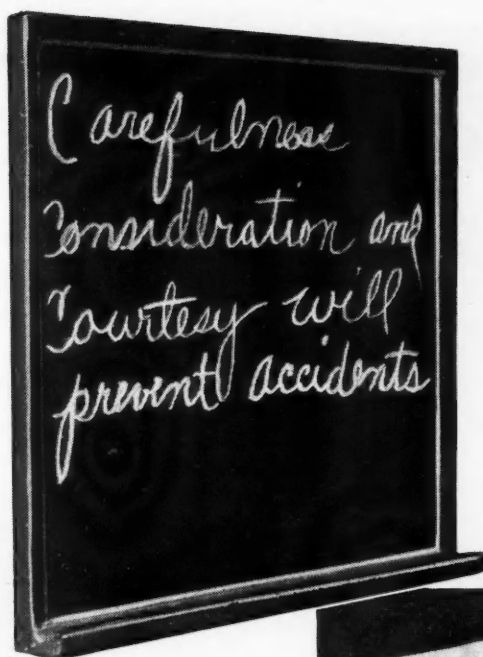 Carefulness
Consideration and
Courtesy will
prevent accidents